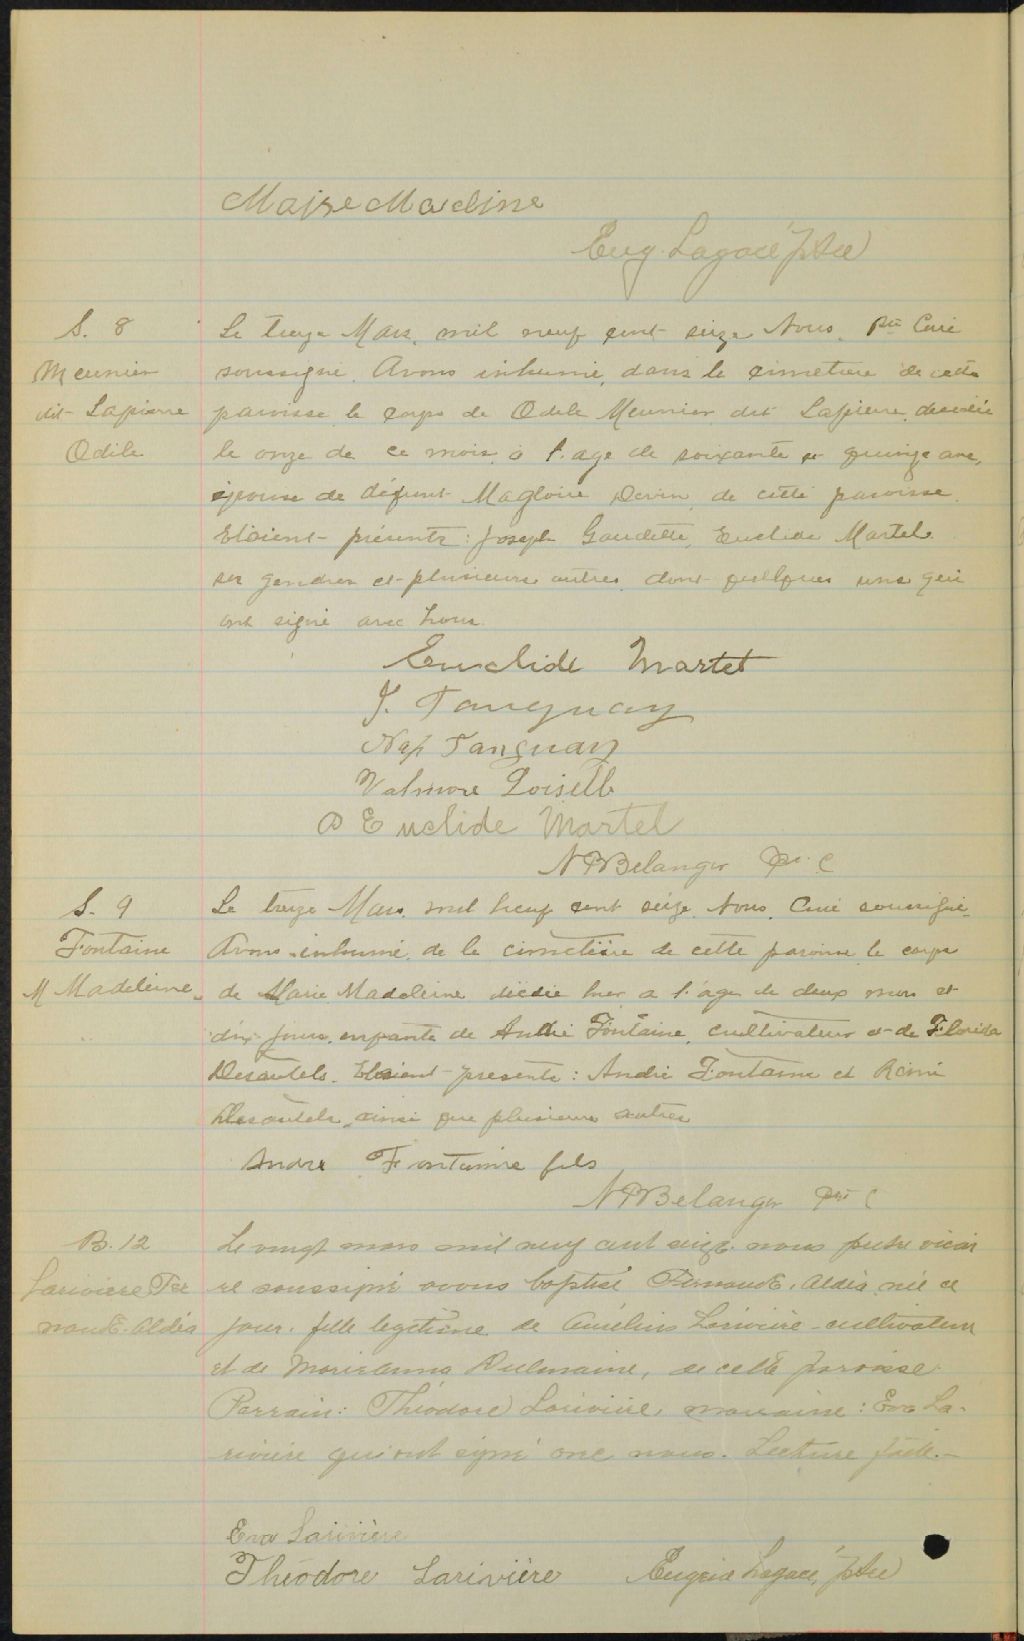 Eug. Lagacé ptre
S. 8
Meunier
dit Lapierre
Odile
Le treize Mars, mil neuf cent seize Nous, ptre Curé
soussigné, Avons inhumé, dans le cimetière de cette
paroisse le corps de Odile Meunier dit Lapierre, décédée
le onze de ce mois, à l'age de soixante et quinze ans,
épouse de défunt Magloire de cette paroisse.
Etaient présents: Joseph Gaudette, Euclide Martel
ses gendres et plusieurs autres dont quelques uns qui
ont signé avec nous.
Euclide Martel
J. Tanguay
Nap Tanguay
Valmore Loiselle
Euclide Martel
N P Belanger Ptre C
S. 9
Fontaine
M Madeleine
Le treize Mars, mil neuf cent seize, Nous, Curé soussigné
Avons inhumé, de le cimetière de cette paroisse le corps
de Marie Madeleine décédée hier a l'age de deux mois et
dix jours, enfante de André Fontaine, cultivateur et de Florida
Desautels. Etaient présents: André Fontaine et Rémi
Desautels, ainsi que plusieurs autres
Andre Fontaine fils
N P Belanger Ptre C
B. 12
Lariviere Fer
nande Aldéa
Le vingt mars mil neuf cent seize nous prêtre vicai
re soussigné avons baptisé Fernande, Aldéa, née ce
jour, fille légitime de Larivière cultivateur
et de Marieanna de cette paroisse.
Parrain: Théodore Larivière, marraine: Eva La-
rivière qui ont signé avec nous. Lecture faite.-
Eva Larivière
Théodore Larivière
Lagacé, ptre